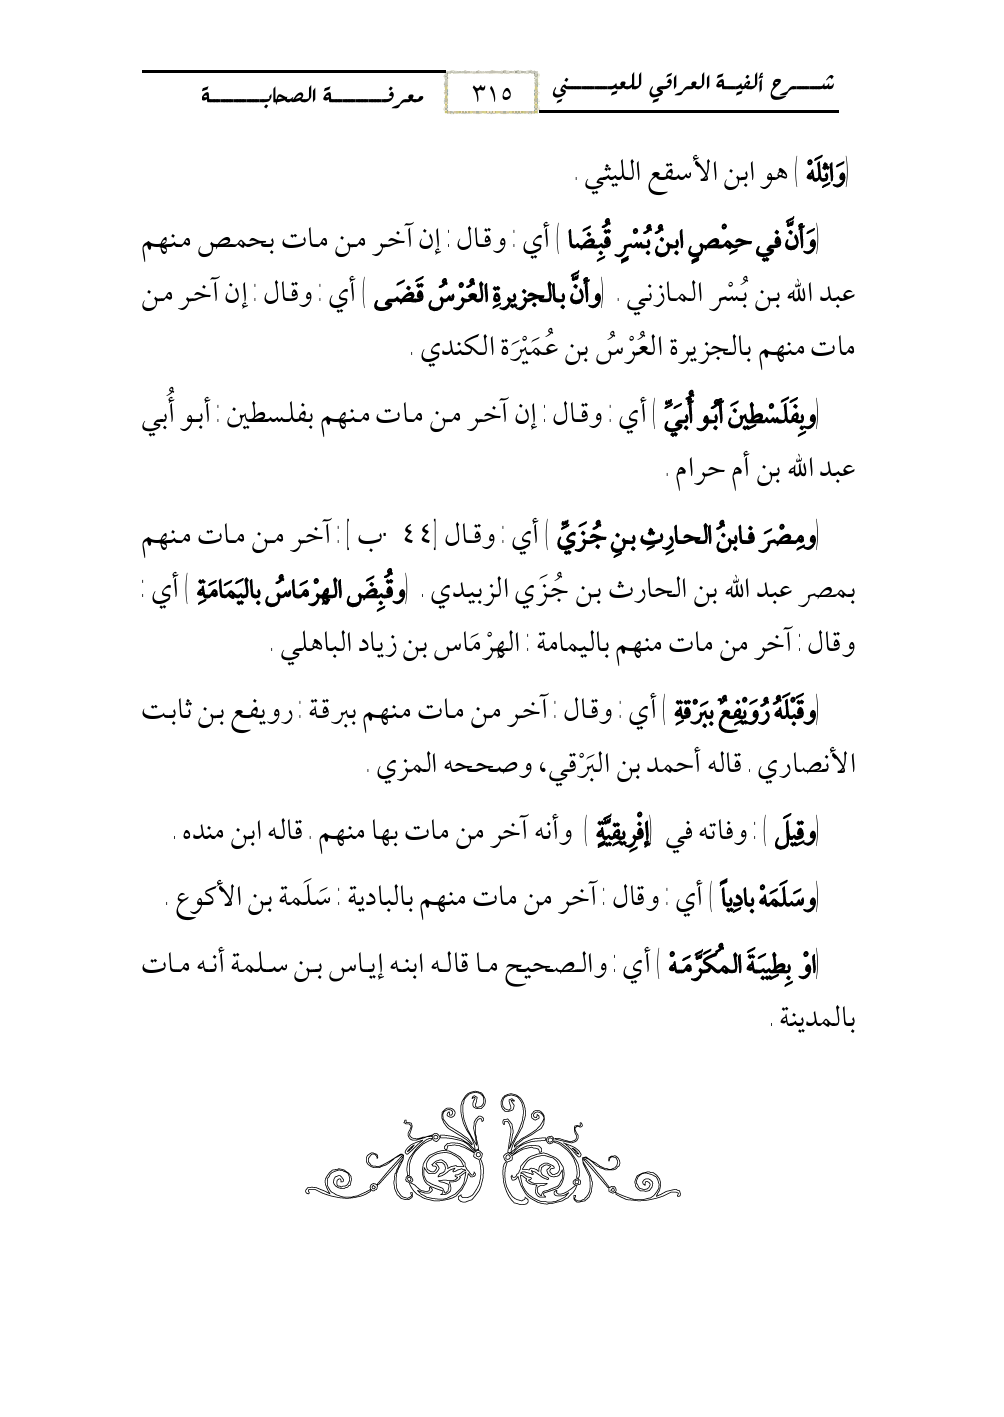 شـــرح ألفيـة العراقي للعيـــــني
٣١٥
معرفـــــــة الصحابـــــــة
(وَاثِلَهْ) هو ابن الأسقع الليثي .
(وَأنَّ في حِمْصٍ ابنُ بُسْرٍ قُبِضَا) أي : وقال : إن آخر من مات بحمص منهم
عبد الله بن بُسْر المازني . (وأنَّ بالجزيرةِ العُرْسُ قَضَى) أي : وقال : إن آخر من
مات منهم بالجزيرة العُرْسُ بن عُمَيْرَة الكندي .
(وبِفَلَسْطِينَ أَبُو أُبَيِّ) أي : وقال : إن آخر من مات منهم بفلسطين : أبو أُبي
عبد الله بن أم حرام .
(ومِصْرَ فابنُ الحارِثِ بنِ جُزَيِّ) أي : وقال [٤٤ ·ب] : آخر من مات منهم
بمصر عبد الله بن الحارث بن جُزَي الزبيدي . (وقُبِضَ الهِرْمَاسُ باليَمَامَةِ) أي :
وقال : آخر من مات منهم باليمامة : الهِرْمَاس بن زياد الباهلي .
(وقَبْلَهُ رُوَيْفِعٌ ببَرْقةِ) أي : وقال : آخر من مات منهم ببرقة : رويفع بن ثابت
الأنصاري . قاله أحمد بن البَرْقي، وصححه المزي .
(وقِيلَ) : وفاته في (إفْرِيقِيَّةٍ) وأنه آخر من مات بها منهم . قاله ابن منده .
(وسَلَمَهْ بادِياً) أي : وقال : آخر من مات منهم بالبادية : سَلَمة بن الأكوع .
(اوْ بِطِيبَةَ المُكَرَّمَهْ) أي : والصحيح ما قاله ابنه إياس بن سلمة أنه مات
بالمدينة .